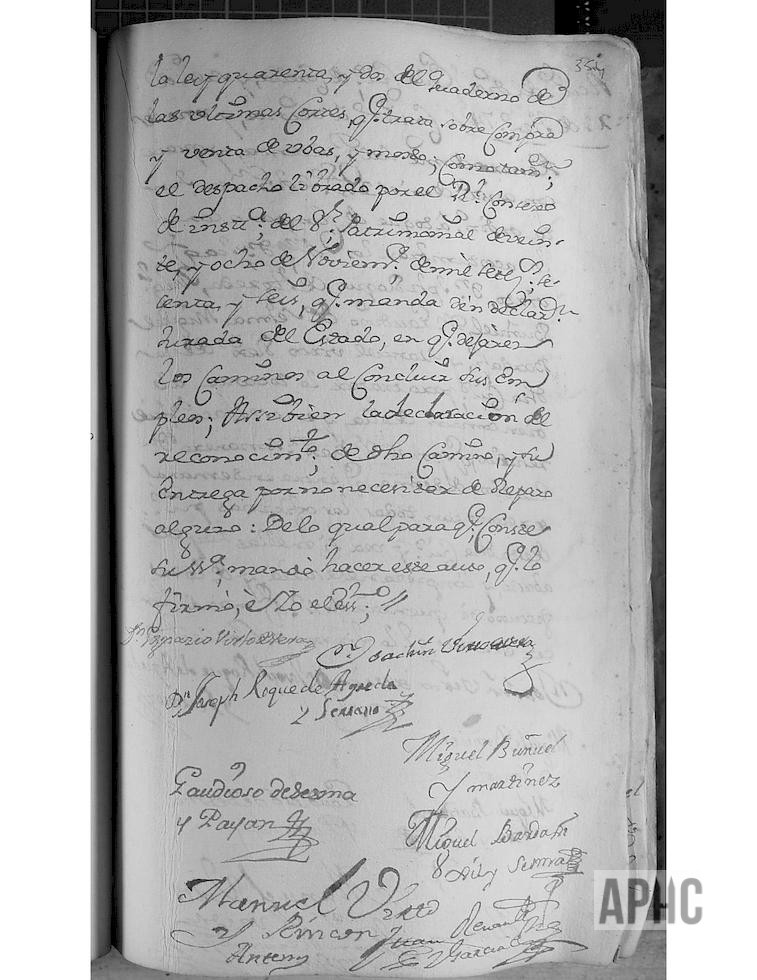 354
la ley quarenta, y dos del quaderno de
las ultimas Cortes, q.e trata sobre Compra
y venta de ubas, y mosto; Como tam.n
el despacho librado por el R.l Consexo
de del Patrimonial de vein-
te, y ocho de Noviem.e de mil setez.s se-
tenta, y seis, q.e manda den declar.n
Jurada del Estado, en q.e dejaren
los Caminos al Concluir sus Em
pleos; Assibien la declaracion del
reconocim.to; de dho Camino, y su
entrega por no necesitar de Reparo
alguno: De lo qual para q.e Conste
su mandò hacer este auto, q.e lo
firmò, è Yo el Ess.no; //
Ygnazio
Joachin
D.n Joseph Roque de Agreda
y Serrano
Miguel Buñuel
y martinez
Gaudioso de Sesma
y Payan
Miguel
y
Manuel
y Rincon
Juan
Garcia
Antemy
APHC